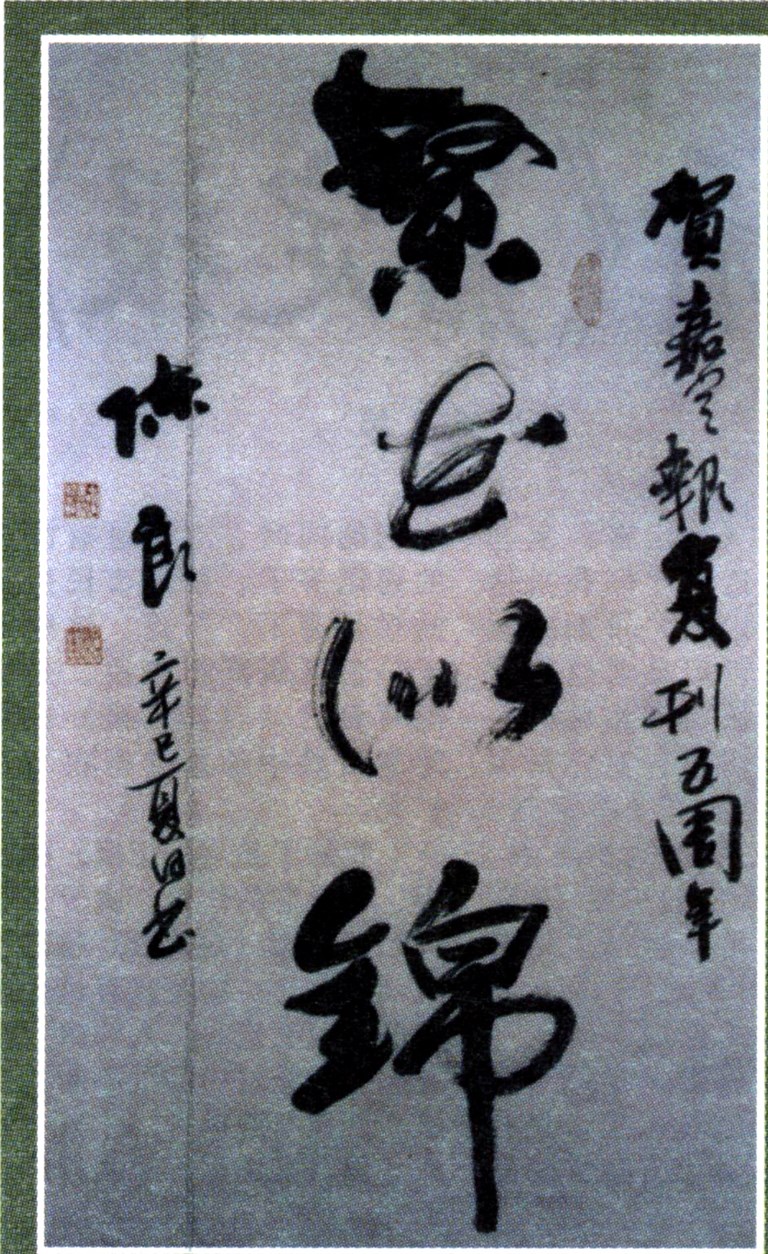 賀嘉定報复刊五周年
繁花似錦
陳郎
辛巳夏日書